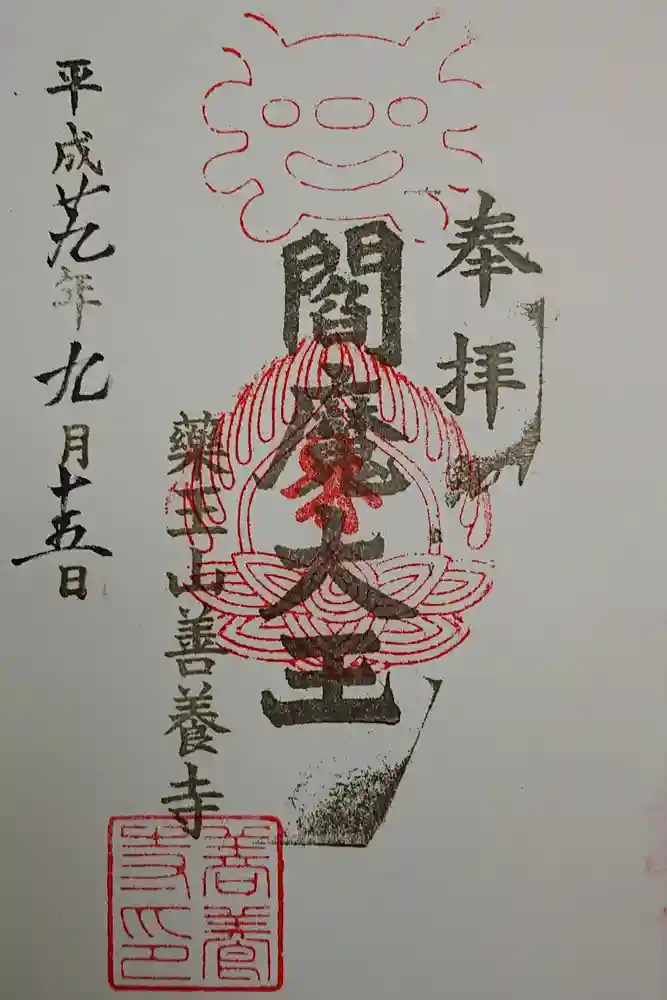 奉拝
閻魔大王
薬王山善養寺
平成廿九年九月十五日
善養
寺印